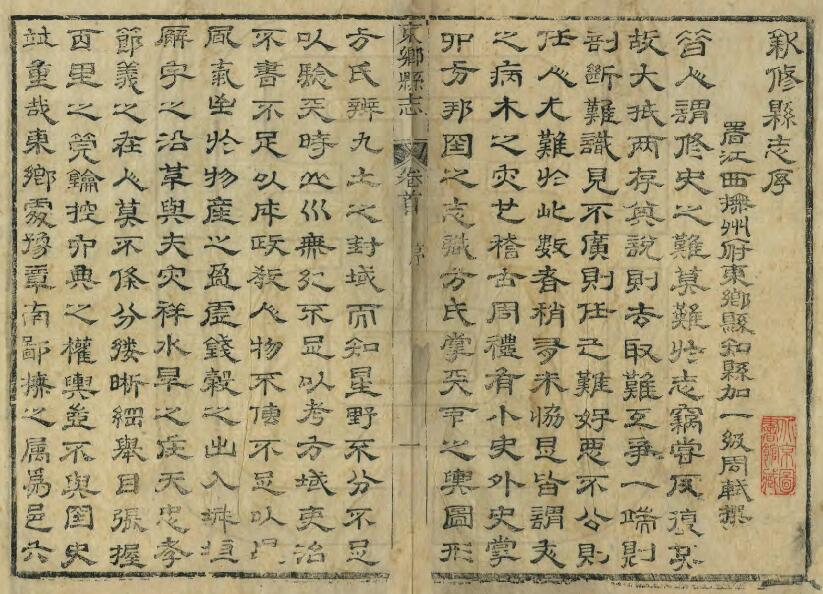 新修縣志序
署江西撫州府東鄉縣知縣加一級周軾撰
昔人謂修史之難莫難於志竊嘗反復思
故大抵兩存其說則去取難互爭一端則
剖斷難識見不廣則任己難好惡不公則
任人尤難於此數者稍有未協皆謂文
之病木之災也稽古周禮有小史外史掌
四方邦國之志職方氏掌天下之輿圖形
東鄉縣志
卷首
序
一
方氏辨九土之封域而知星野不分不足
以驗天時山川無紀不足以考方域吏治
不書不足以成政教人物不傳不足以
風氣生於物產之盈虛錢穀之出入城垣
廨宇之沿革與夫災祥水旱之在天忠孝
節義之在人莫不條分縷晰綱舉目張握
百里之筦鑰控六典之權輿豈不與國史
並重哉東鄉處豫章南鄙撫之属爲邑六